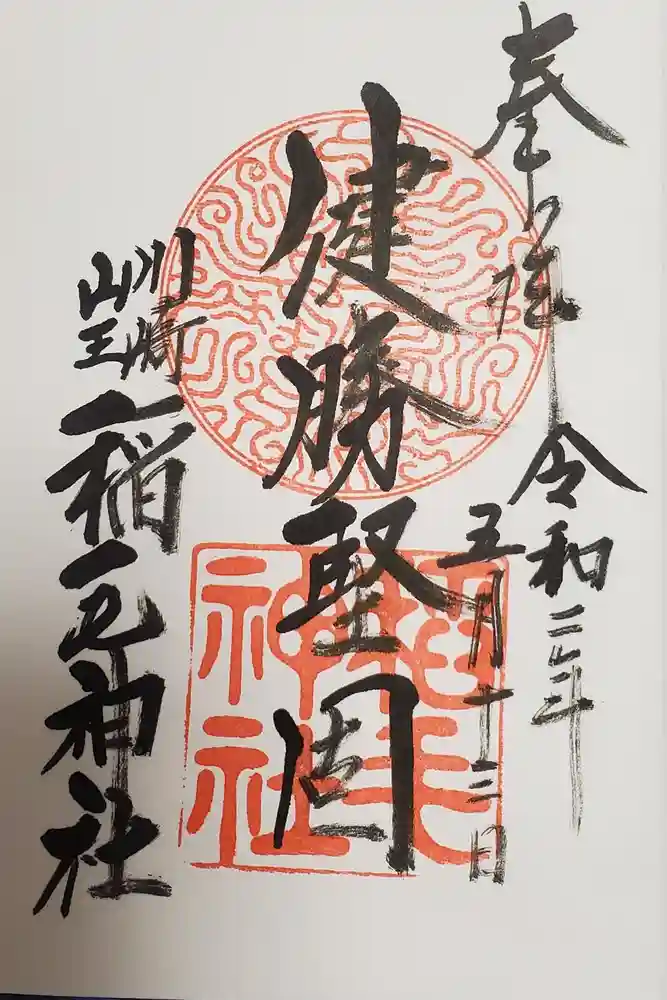 奉拝
令和三年
五月十三日
健勝堅固
川崎
山王
稲毛神社
稲毛
神社